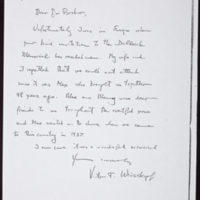 Dear Dr
Unfortunately I was in Europe when
your kind invitation to the Delbrück
Memorial has reached me. My wife and
I regretted that we could not attend
since it was Max who brought us together
48 years ago. Max and Manny was
friends to us throughout the
and Max wanted us to when we came
to this country in 1937.
I am sure it was a wonderful
Yours sincerely
Victor F. Weisskopf